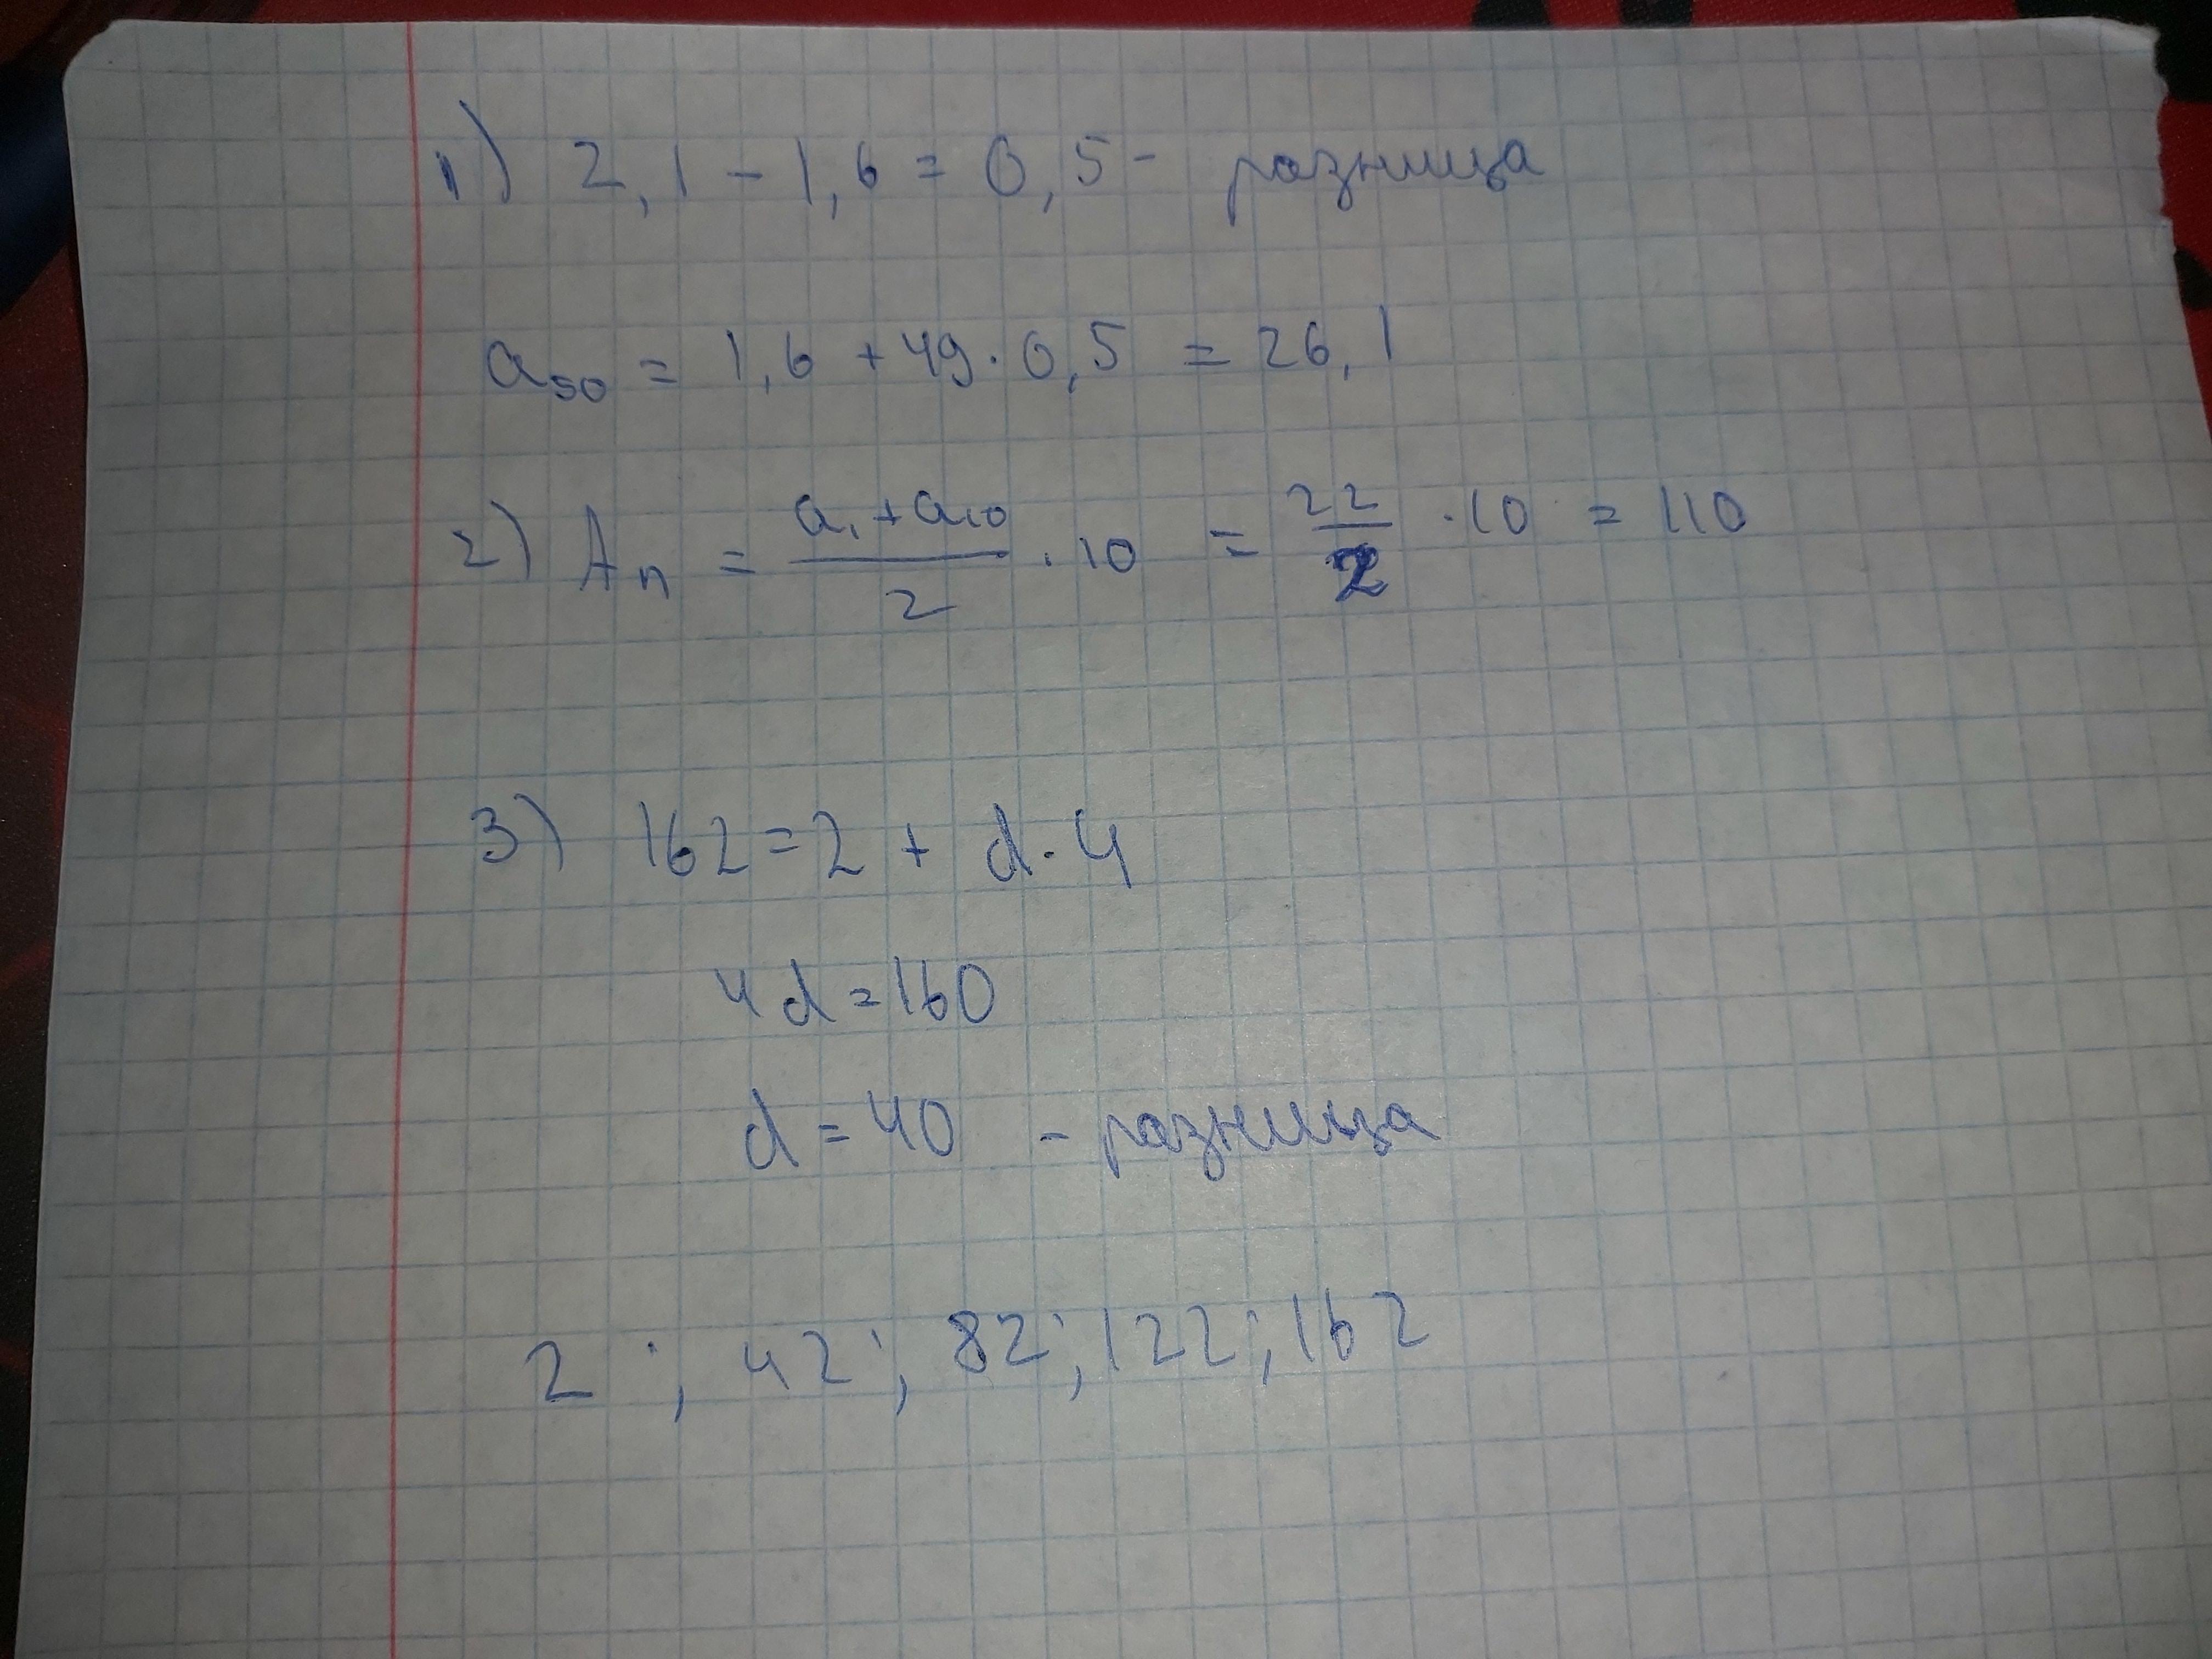 1) 2,1 - 1,6 = 0,5 - разница
a₅₀ = 1,6 + 49 · 0,5 = 26,1
2) Aₙ = (a₁ + a₁₀)/2 · 10 = 22/2 · 10 = 110
3) 162 = 2 + d · 4
4d = 160
d = 40 - разница
2 ; 42 ; 82 ; 122 ; 162